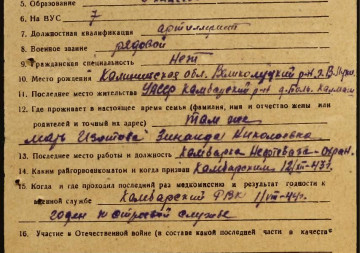 5. Образование
6. На ВУС 7
7. Должностная квалификация артиллерист
8. Военное звание рядовой
9. Гражданская специальность нет
10. Место рождения Калининская обл. Великолукский р-н, г. В.
11. Последнее место жительства УАССР Камбарский р-н
12. Где проживает в настоящее время семья (фамилия, имя и отчество жены или
родителей и точный их адрес) там же
мать Изотова Зинаида Николаевна
13. Последнее место работы и должность Камбарка Нефтебаза - охран.
14. Каким райгорвоенкоматом и когда призван Камбарским 12/III-43г.
15. Когда и где проходил последний раз медкомиссию и результат годности к
военной службе Камбарский РВК 11/III-44г.
годен к строевой службе
16. Участие в Отечественной войне (в составе какой последней части в качестве